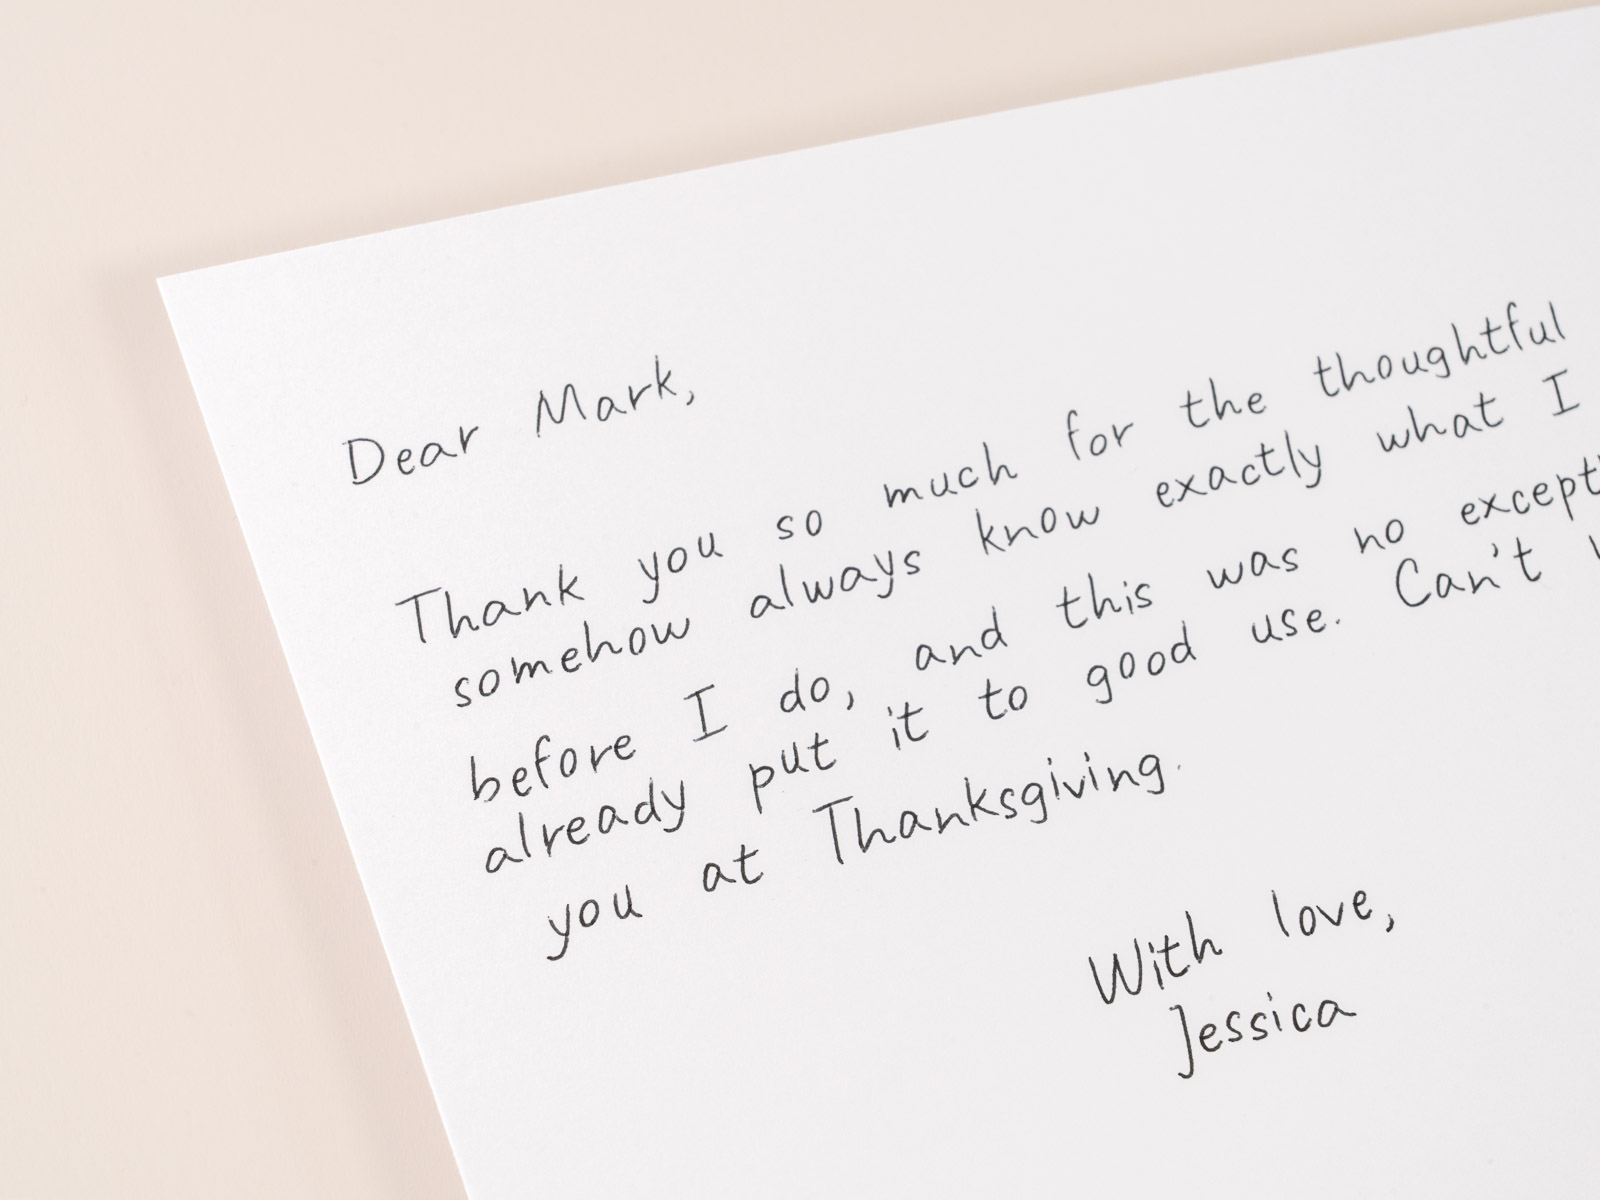 Dear Mark,
Thank you so much for the thoughtful
somehow always know exactly what I
before I do, and this was no
already put it to good use. Can't
you at Thanksgiving.
With love,
Jessica